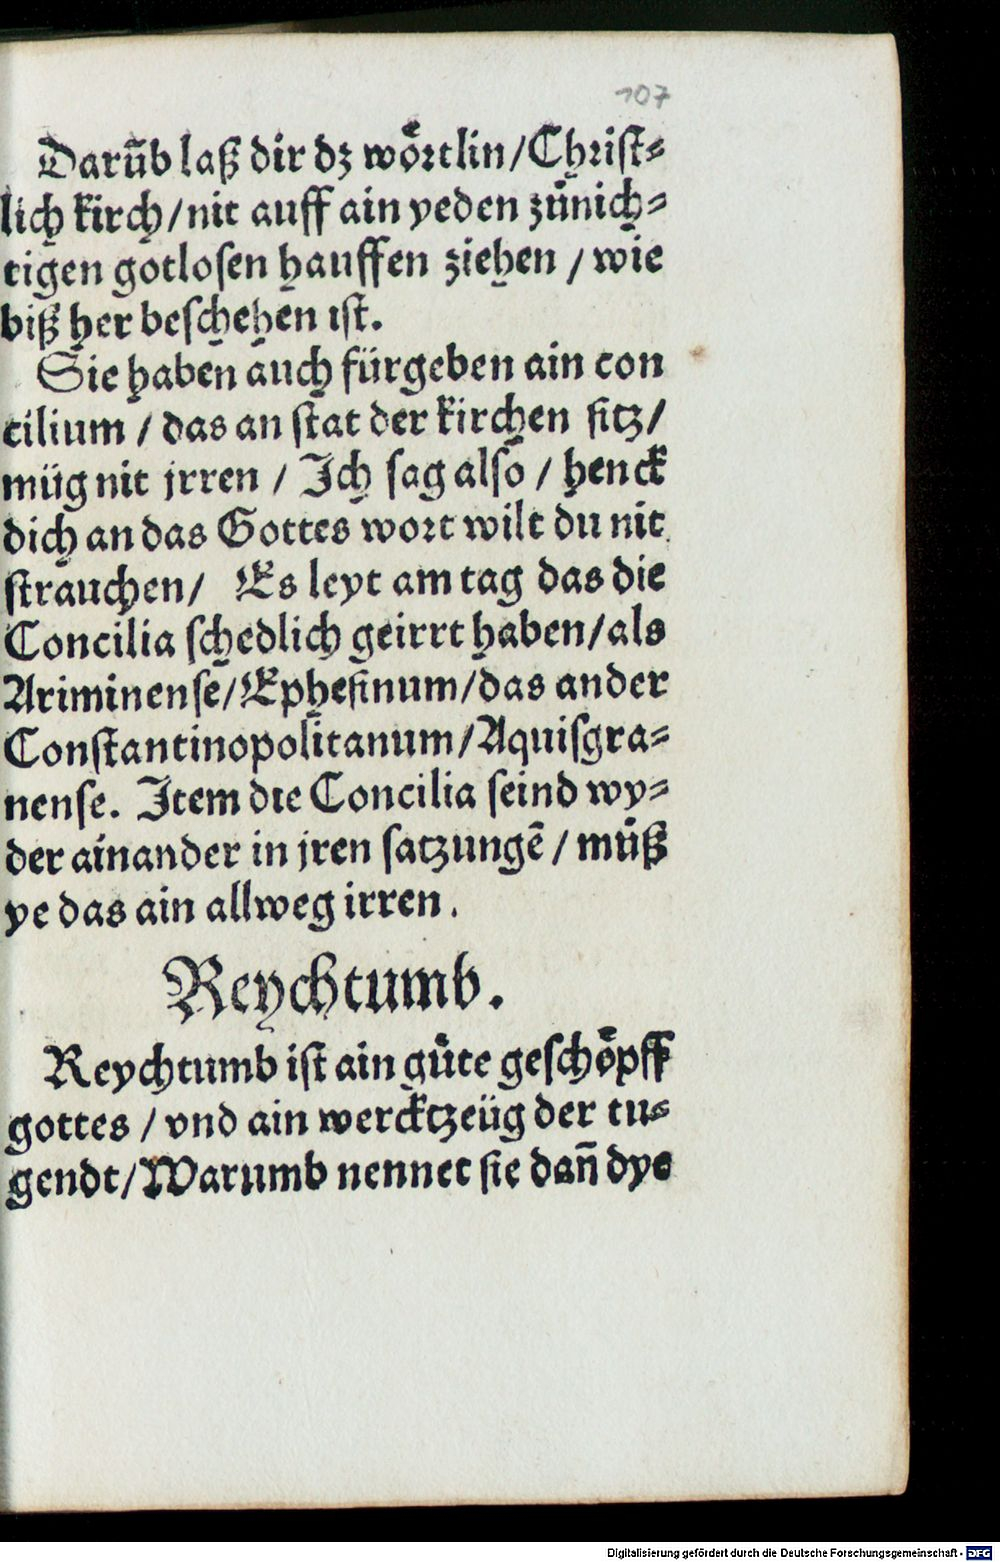 107
Darūb laß dir dz wortlin/Christ-
lich kirch/nit auff ain yeden zůnich-
tigen gotlosen hauffen ziehen / wie
biß her beschehen ist.
Sie haben auch fürgeben ain con
cilium / das an stat der kirchen sitz/
müg nit jrren / Jch sag also / henck
dich an das Gottes wort wilt du nit
strauchen/ Es leyt am tag das die
Concilia schedlich geirrt haben/als
Ariminense/Ephesinum/das ander
Constantinopolitanum/Aquisgra-
nense. Jtem die Concilia seind wy-
der ainander in jren satzungē / můß
ye das ain allweg irren.
Reychtumb.
Reychtumb ist ain gůte geschöpff
gottes / vnd ain wercktzeüg der tu-
gendt/Warumb nennet sie dañ dye
Digitalisierung gefördert durch die Deutsche Forschungsgemeinschaft - DFG